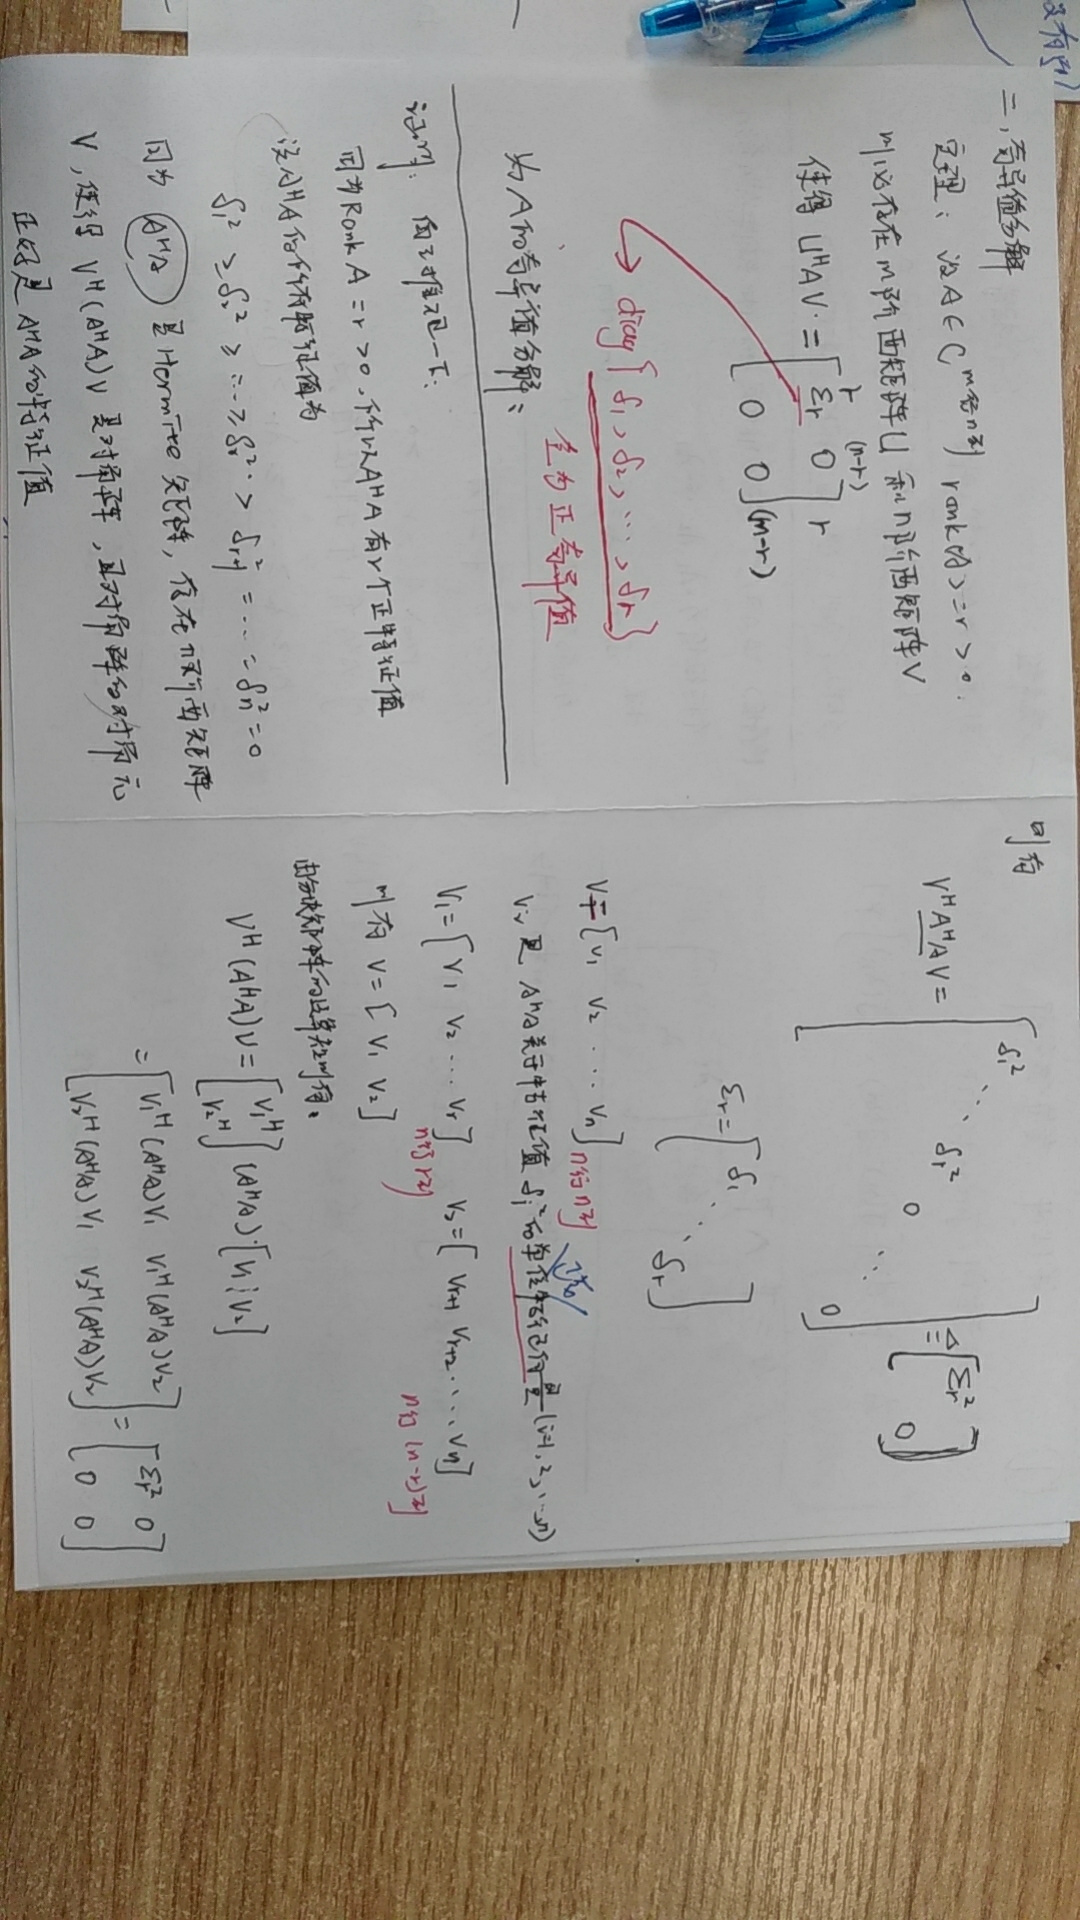 二、奇异值分解
定理：设A∈C m行n列 rank(A)=r>0.
则必存在m阶酉矩阵U和n阶酉矩阵V
使得 U^H A V = [Σr 0; 0 0] r (n-r) r (m-r)
→ diag{δ1, δ2, ..., δr}
全为正奇异值
为A的奇异值分解：
证明：
因为Rank A = r > 0，所以A^H A有r个正特征值
设A^H A的所有特征值为
δ1² ≥ δ2² ≥ ... ≥ δr² > δr+1² = ... = δn² = 0
因为 A^H A 是Hermite矩阵，存在n阶酉矩阵
V，使得 V^H(A^H A)V 是对角阵，且对角阵的对角元
正好是A^H A的特征值
则有
V^H A^H A V = [δ1² ⋱ δ1² 0 ⋱ 0] ≜ [Σr² 0]
Σr = [δ1 ⋱ δr]
V = [v1 v2 ... vn] n行n列
Vi 是 A^H A关于特征值 δi² 的单位特征向量 (i=1,2,...n)
V1 = [v1 v2 ... vr] n行r列 V2 = [vr+1 vr+2 ... vn] n行(n-r)列
则有 V = [V1 V2]
由分块矩阵的运算规则有：
V^H(A^H A)V = [V1^H; V2^H] (A^H A)·[V1 ⋮ V2]
= [V1^H(A^H A)V1 V1^H(A^H A)V2; V2^H(A^H A)V1 V2^H(A^H A)V2] = [Σr² 0; 0 0]